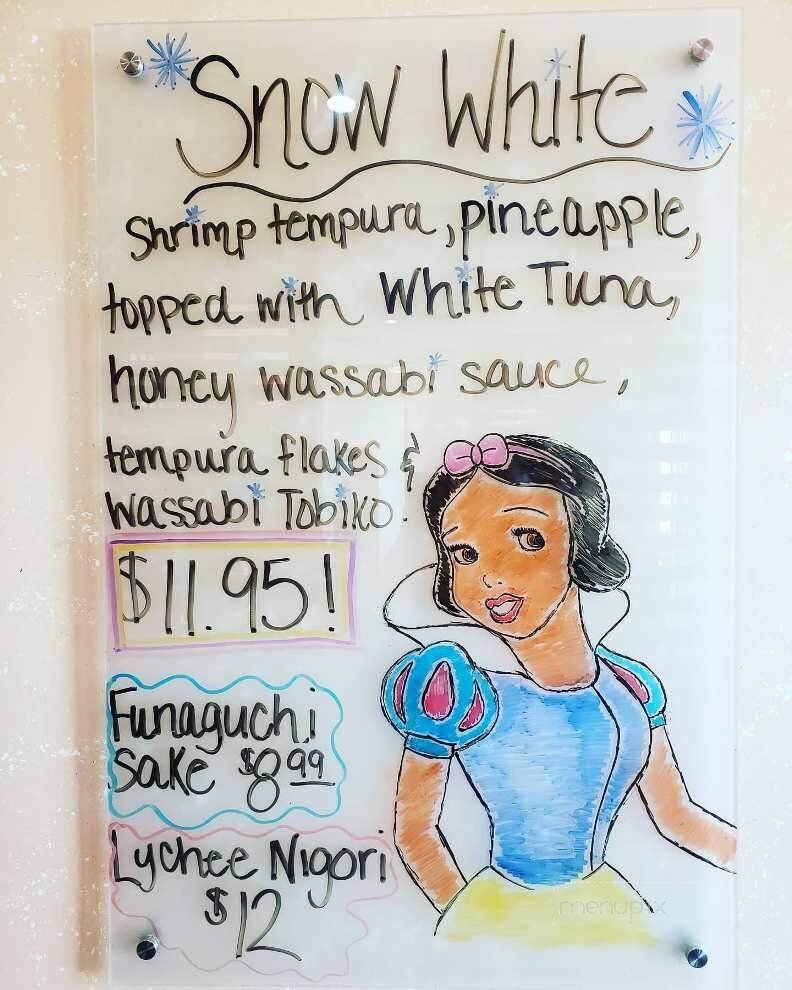 Snow White
Shrimp tempura, pineapple,
topped with White Tuna,
honey wassabi sauce,
tempura flakes &
Wassabi Tobiko.
$11.95!
Funaguchi
Sake $8.99
Lychee Nigori
$12
menupix